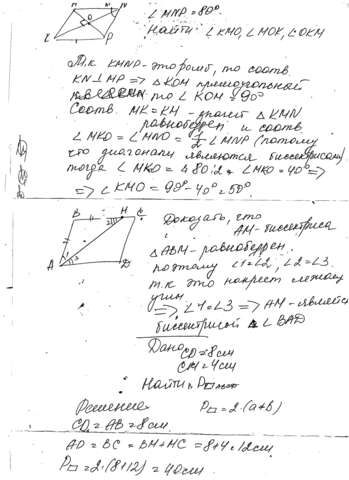 ∠MNP = 80°.
Найти ∠KMO, ∠MOK, ∠OKM
Т.к. KMNP - это ромб, то соотв.
KN⊥MP => △KOM прямоугольный
∠KOM = 90°
Соотв. MK = KH - значит △KMN
равнобедрен, и соотв.
∠MKO = ∠MNO = 1/2 ∠MNP (потому
что диагонали являются биссектрисами)
тогда ∠MKO = 80:2 ∠MKO = 40° =>
=> ∠KMO = 90° - 40° = 50°.
B H C
A D
Доказать, что
AM - биссектриса
△ABM - равнобедрен.
поэтому ∠1=∠2, ∠2=∠3.
т.к это накрест лежащ.
углы
=> ∠1=∠3 => AM - является
биссектрисой ∠BAD
Дано
CD = 8см
CM = 4см
Найти P
Решение P▱ = 2·(a+b)
CD = AB = 8см.
AD = BC = BM + MC = 8+4 = 12см
P▱ = 2·(8+12) = 40см.